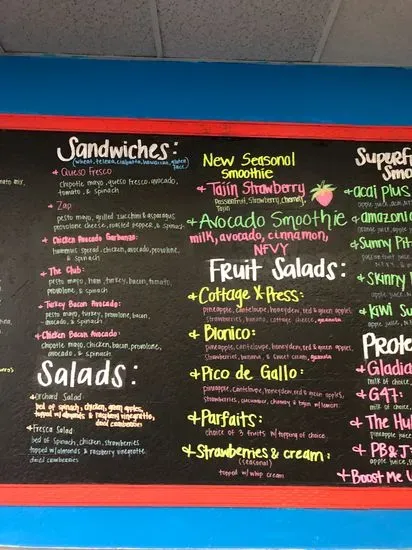 Sandwiches:
(wheat, telera, ciabatta, hawaiian, gluten free)
+ Queso Fresco
chipotle mayo, queso fresco, avocado,
tomato, & spinach
+ Zap
pesto mayo, grilled zucchini & asparagus,
provolone cheese, roasted pepper, & spinach
+ Chicken Avocado Garbanzo:
hummus spread, chicken, avocado, provolone,
& spinach
+ The Club:
pesto mayo, ham, turkey, bacon, tomato,
provolone, & spinach
+ Turkey Bacon Avocado:
pesto mayo, turkey, bacon, provolone, avocado,
& spinach
+ Chicken Bacon Avocado:
chipotle mayo, chicken, bacon, provolone,
avocado, & spinach
Salads:
+ Orchard Salad
bed of spinach, chicken, green apples,
topped w/almonds & raspberry vinegrette,
dried cranberries
+ Fresca Salad:
bed of spinach, chicken, strawberries
topped w/almonds & raspberry vinegrette
dried cranberries
New Seasonal
Smoothie
+ Tajin Strawberry
Passionfruit, Strawberry, chamoy,
Tajin
+ Avocado Smoothie
milk, avocado, cinnamon,
NFVY
Fruit Salads:
+ Cottage X-Press:
pineapple, canteloupe, honeydew, red & green apples,
strawberries, banana, cottage cheese, granola
+ Bionico:
pineapple, canteloupe, honeydew, red & green apples,
strawberries, banana, & sweet cream, granola
+ Pico de Gallo:
pineapple, canteloupe, honeydew, red & green apples,
strawberries, cucumber, chamoy & tajin w/lemon.
+ Parfaits:
choice of 3 fruits w/topping of choice
+ Strawberries & cream:
(seasonal)
topped w/whip cream
Superf
Smo
+ acai plus
+ amazoni
+ Sunny Pit
+ Skinny
+ Kiwi Su
Prote
+ Gladia
milk of choice
+ G47:
milk of choice
+ The Hul
pineapple juice
+ PB & J:
apple juice
+ Boost Me U